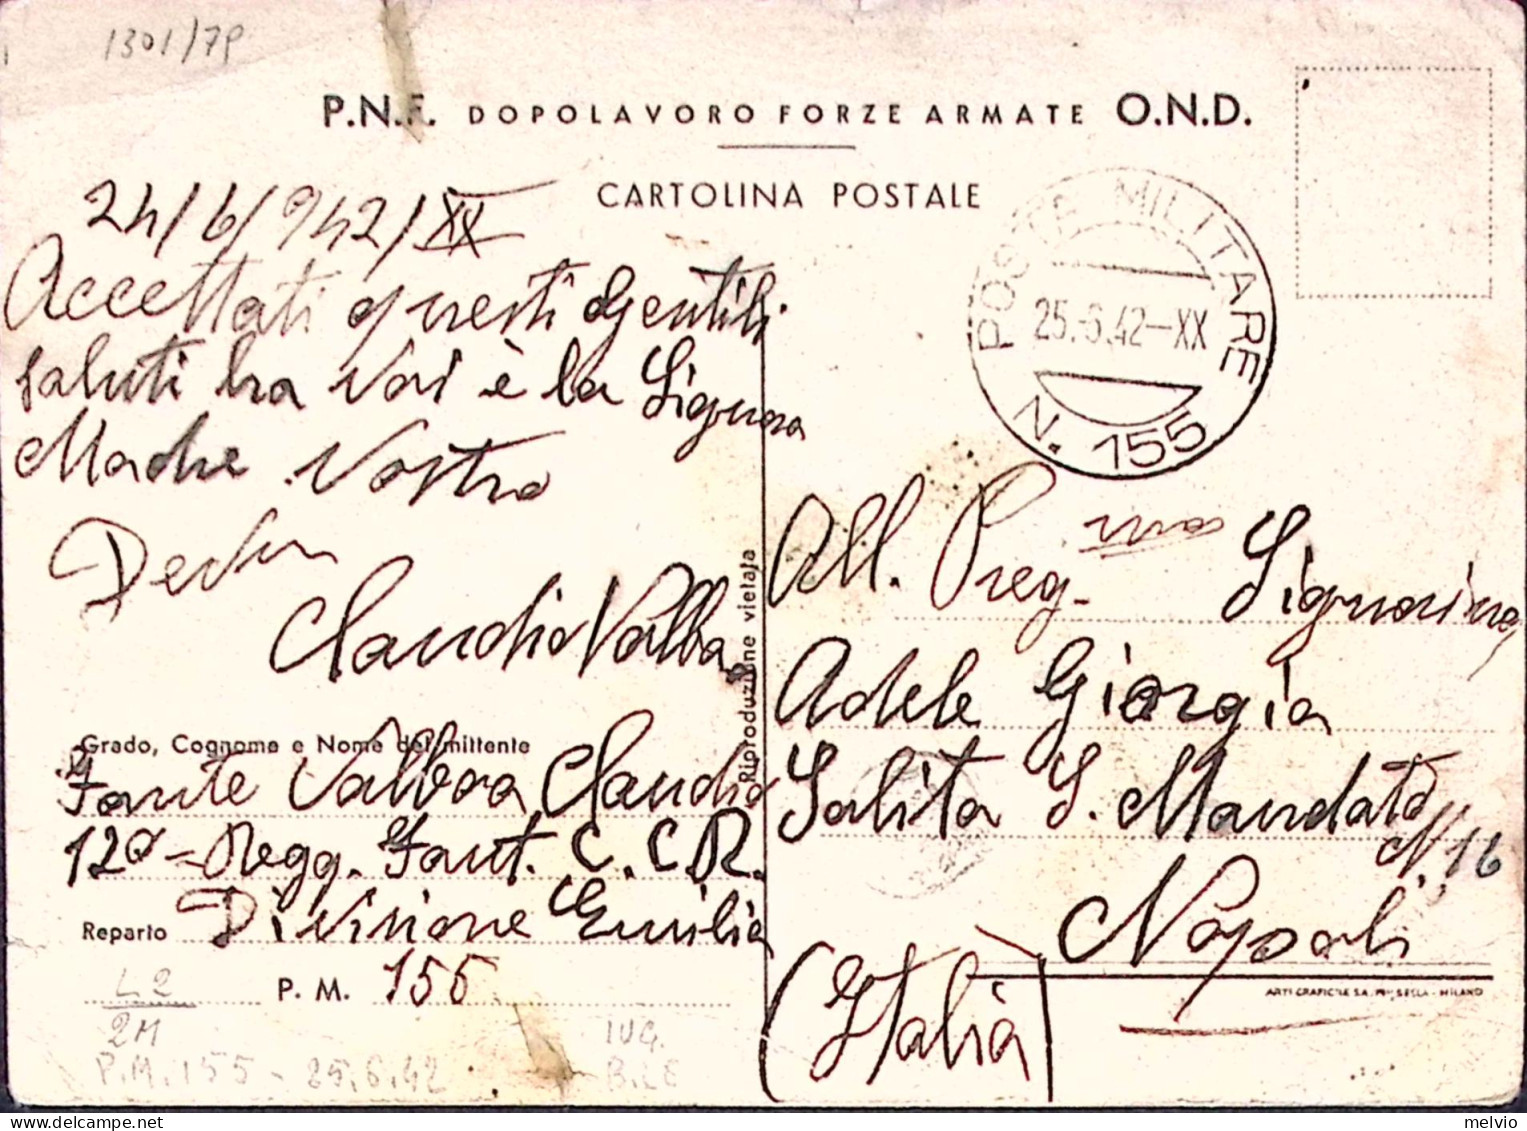 1301/7P
P.N.F. DOPOLAVORO FORZE ARMATE O.N.D.
CARTOLINA POSTALE
POSTE MILITARE
25.6.42-XX
N. 155
24/6/942/XX
Accettati questi gentili
saluti ha Voi è la Signora
Madre Vostra
Claudio Valboa
Riproduzione vietata
All. Preg. Signorina
Adele Giorgia
Salita S. Mandato
N. 16
Napoli
(Italia)
Grado, Cognome e Nome del mittente
Fante Valboa Claudio
120- Regg. Fant. C.C.R.
Reparto Divisione Emilia
P. M. 155
ARTI GRAFICHE S.A. PIZ. SESIA - MILANO
L2
2M
P.M. 155 - 25.6.42
IUG.
melvio